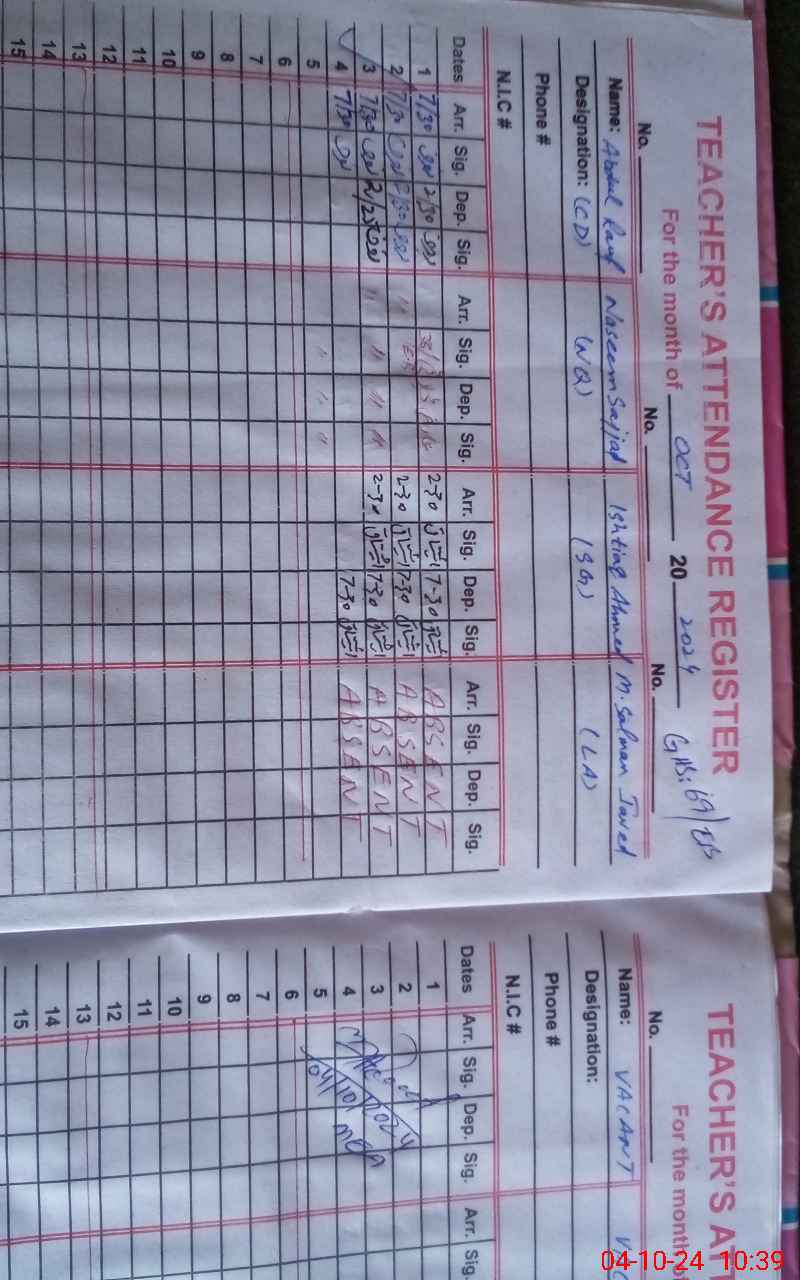 TEACHER'S ATTENDANCE REGISTER
For the month of OCT 20 2024
No. No. No. No.
Name: Abdul Rauf Naseem Sajjad Ishtiaq Ahmed M. Salman Javed
Designation: (CD) (WQ) (SG) (LA)
Phone #
N.I.C #
Dates Arr. Sig. Dep. Sig. Arr. Sig. Dep. Sig. Arr. Sig. Dep. Sig. Arr. Sig. Dep. Sig.
1 7/30 2/30 2-30 7-30 ABSENT
2 7/30 2/30 " 2-30 7-30 ABSENT
3 7/30 2/25 " " " " 2-30 7-30 ABSENT
4 7/30 7-30 ABSENT
5 " " "
6
7
8
9
10
11
12
13
14
15
TEACHER'S AT
For the month
No.
Name: VACANT
Designation:
Phone #
N.I.C #
Dates Arr. Sig. Dep. Sig. Arr. Sig.
1
2
3
4
5
6
7
8
9
10
11
12
13
14
15
04-10-24 10:39